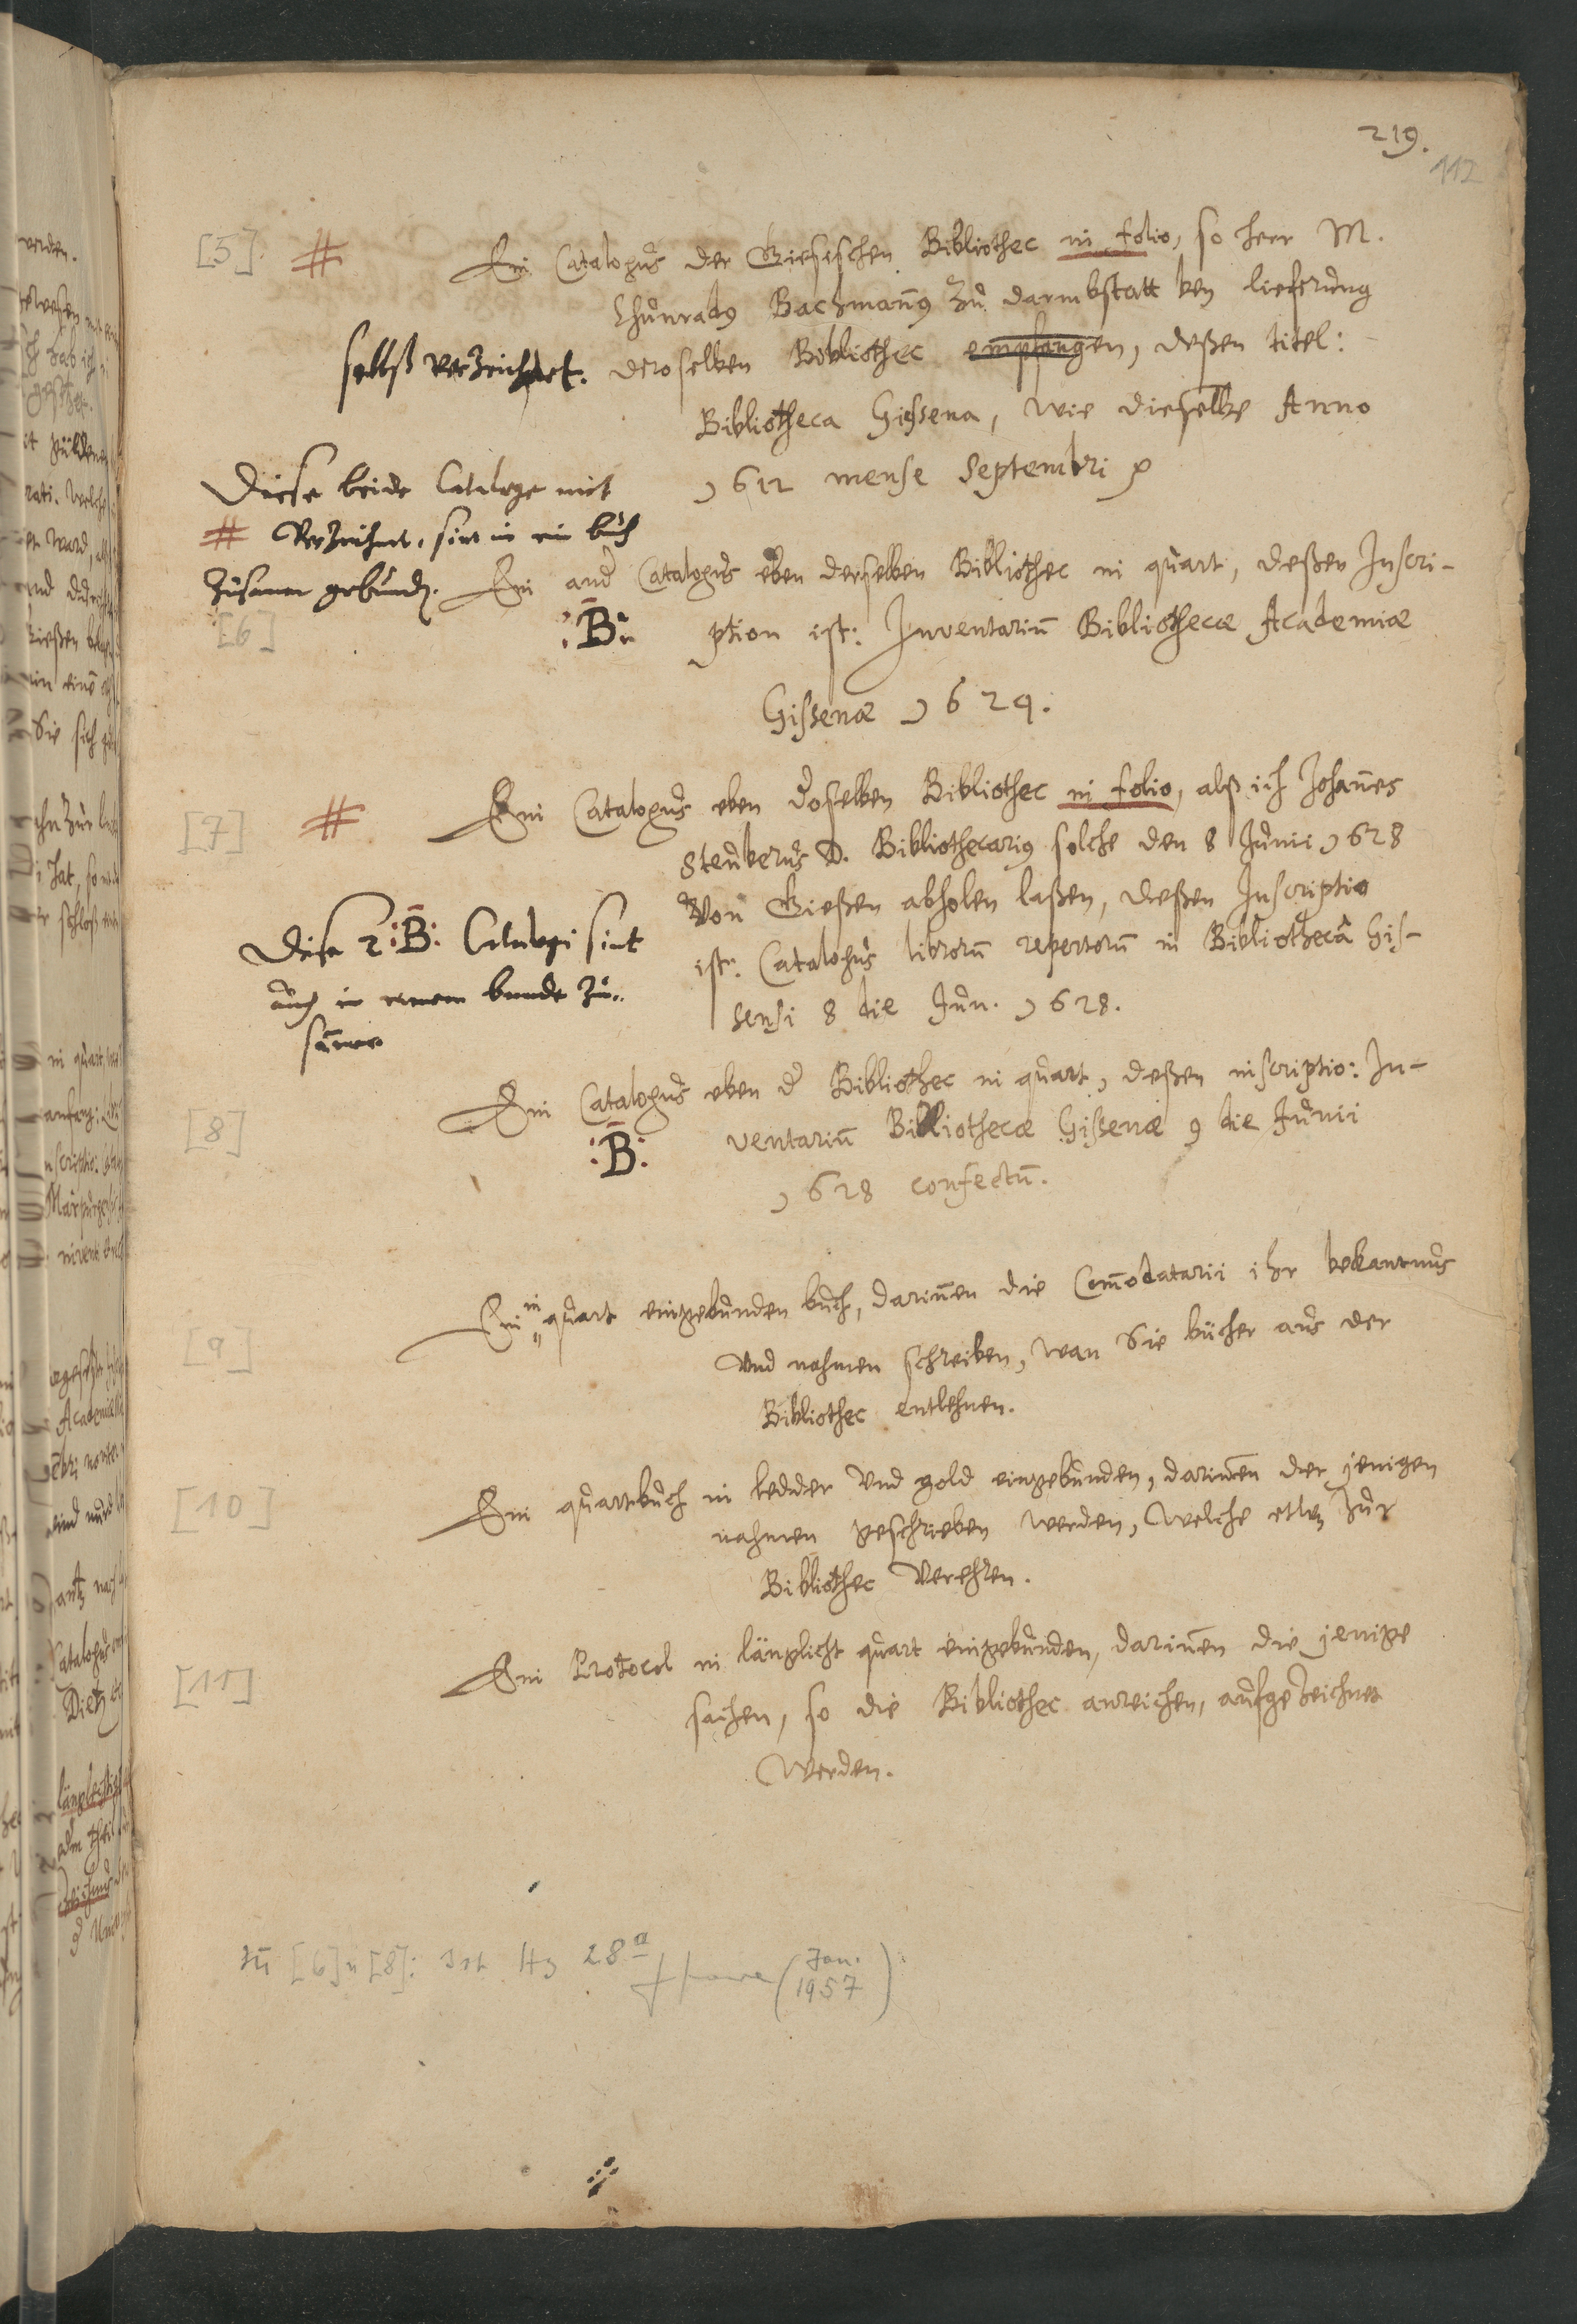 219.
112
[5]. # Ein Catalogus der Giesischen Bibliothec in folio, so herr M.
Chunradus Bachmann9 zu darmbstatt ben lieferung
selbst verzeichnet. deroselben Bibliothec empfangen, deßen titel:
Bibliotheca Gissena, wie dieselbe Anno
1612 mense Septembri
Diese beide Cataloge mit
# Verzeichnet, sint in ein buch
zusamen gebunden.
[6] Ein and Catalogus eben derselben Bibliothec in quart, deßen Inscri-
:B: ption ist: Inventariu Bibliothecæ Academiæ
Gissenæ 1624.
[7] # Ein Catalogus eben deroselben Bibliothec in folio, alß ich Johanes
Steuberus D. Bibliothecari9 solche den 8 Junii 1628
Von Gießen abholen laßen, deßen Inscriptio
ist: Catalogus librorū repertorū in Bibliothecâ Gis-
sensi 8 die Jun. 1628.
Diese 2 :B: Catalogi sint
auch in einem bande zu-
samen
[8] Ein Catalogus eben d Bibliothec in quart, deßen inscriptio: In-
:B: ventariū Bibliothecæ Gissenæ 9 die Junii
1628 confectū.
[9] Ein in quart eingebunden buch, darinnen die Comodatarii ihr bekantnus
Und nahmen schreiben, wan Sie bücher aus der
Bibliothec entlehnen.
[10] Ein quartbuch in ledder Und gold eingebunden, darinnen der jenigen
nahmen geschrieben werden, Welche etwz zur
Bibliothec Verehren.
[11] Ein Protocol in länglicht quart eingebunden, darinnen die jenige
sachen, so die Bibliothec anreichen, aufgezeichnet
Werden.
zu [6] u [8]: ist Hs 28a (Jan. 1957)